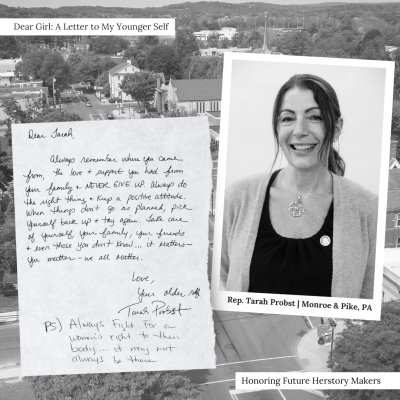 Dear Girl: A Letter to My Younger Self
Dear Tarah,
Always remember where you came
from, the love & support you had from
your family & NEVER GIVE UP. Always do
the right thing & keep a positive attitude.
When things don't go as planned, pick
yourself back up & try again. Take care
of yourself, your family, your friends
& even those you don't know... it matters-
you matter - we all matter.
Love,
your older self,
Tarah Probst
PS) Always fight for a
woman's right to their
body... it may not
always be there
Rep. Tarah Probst | Monroe & Pike, PA
Honoring Future Herstory Makers